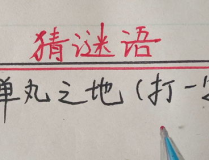 猜谜语
弹丸之地(打一